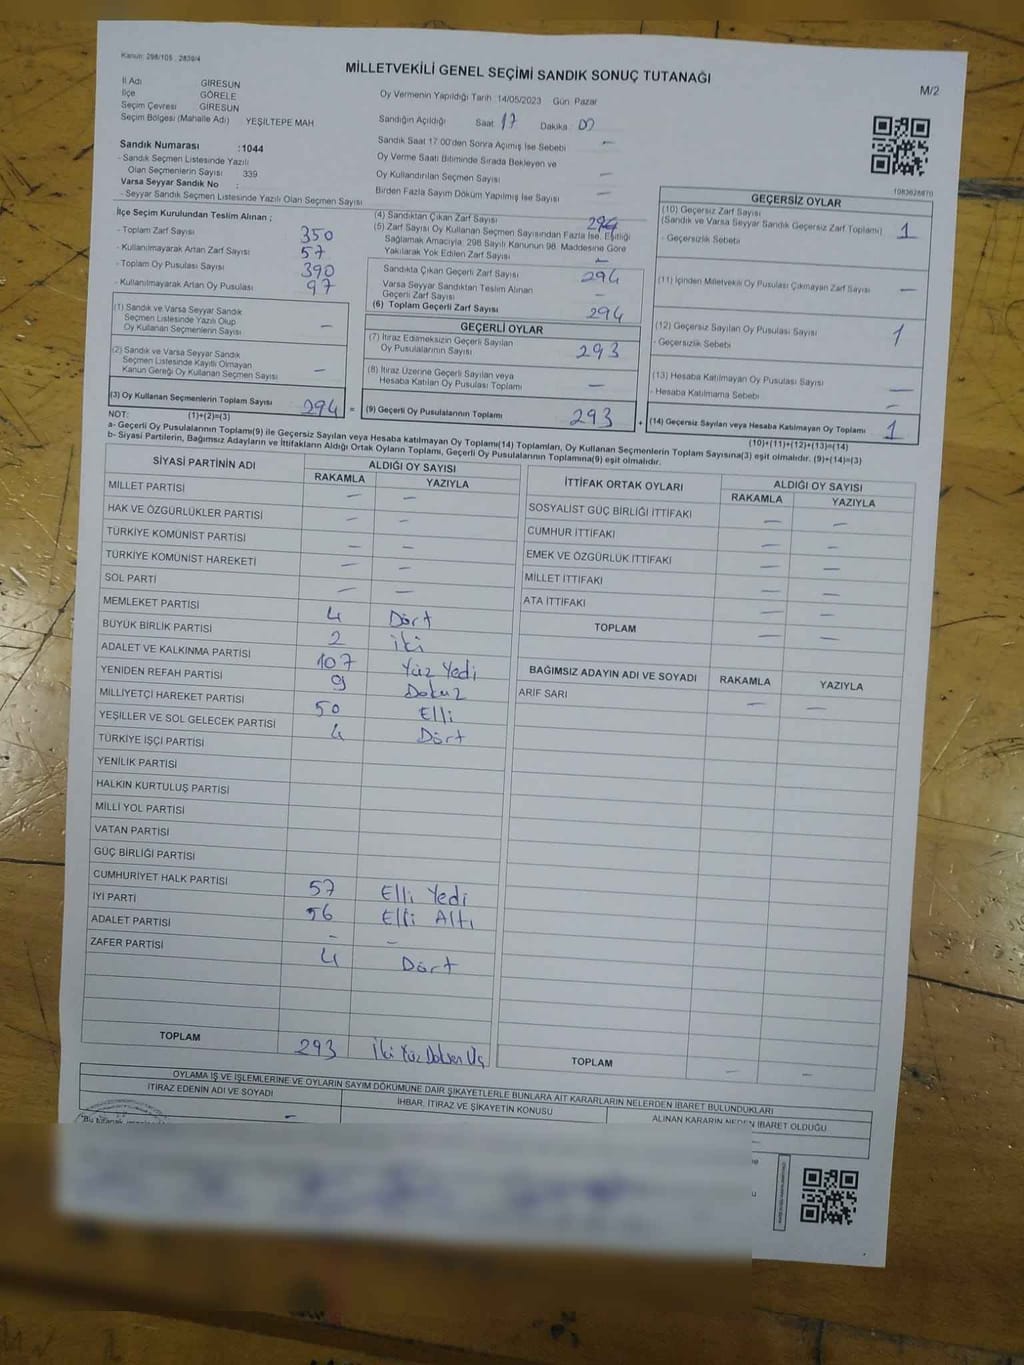 Kanun: 298/105 , 2839/4
MİLLETVEKİLİ GENEL SEÇİMİ SANDIK SONUÇ TUTANAĞI
M/2
İl Adı GİRESUN
İlçe GÖRELE
Seçim Çevresi GİRESUN
Seçim Bölgesi (Mahalle Adı) YEŞİLTEPE MAH
Oy Vermenin Yapıldığı Tarih 14/05/2023 Gün: Pazar
Sandığın Açıldığı Saat 17 Dakika 00
Sandık Saat 17:00'den Sonra Açılmış İse Sebebi —
Oy Verme Saati Bitiminde Sırada Bekleyen ve
Oy Kullandırılan Seçmen Sayısı —
Birden Fazla Sayım Döküm Yapılmış İse Sayısı —
Sandık Numarası :1044
- Sandık Seçmen Listesinde Yazılı
Olan Seçmenlerin Sayısı 339
Varsa Seyyar Sandık No :
- Seyyar Sandık Seçmen Listesinde Yazılı Olan Seçmen Sayısı
1083628870
İlçe Seçim Kurulundan Teslim Alınan ;
- Toplam Zarf Sayısı 350
- Kullanılmayarak Artan Zarf Sayısı 57
- Toplam Oy Pusulası Sayısı 390
- Kullanılmayarak Artan Oy Pusulası 97
(1) Sandık ve Varsa Seyyar Sandık
Seçmen Listesinde Yazılı Olup
Oy Kullanan Seçmenlerin Sayısı —
(2) Sandık ve Varsa Seyyar Sandık
Seçmen Listesinde Kayıtlı Olmayan
Kanun Gereği Oy Kullanan Seçmen Sayısı —
(3) Oy Kullanan Seçmenlerin Toplam Sayısı 294 =
(1)+(2)=(3)
(4) Sandıktan Çıkan Zarf Sayısı 294
(5) Zarf Sayısı Oy Kullanan Seçmen Sayısından Fazla İse, Eşitliği
Sağlamak Amacıyla, 298 Sayılı Kanunun 98. Maddesine Göre
Yakılarak Yok Edilen Zarf Sayısı —
Sandıkta Çıkan Geçerli Zarf Sayısı 294
Varsa Seyyar Sandıktan Teslim Alınan
Geçerli Zarf Sayısı —
(6) Toplam Geçerli Zarf Sayısı 294
GEÇERLİ OYLAR
(7) İtiraz Edilmeksizin Geçerli Sayılan
Oy Pusulalarının Sayısı 293
(8) İtiraz Üzerine Geçerli Sayılan veya
Hesaba Katılan Oy Pusulası Toplamı —
(9) Geçerli Oy Pusulalarının Toplamı 293 +
GEÇERSİZ OYLAR
(10) Geçersiz Zarf Sayısı
(Sandık ve Varsa Seyyar Sandık Geçersiz Zarf Toplamı) 1
- Geçersizlik Sebebi
(11) İçinden Milletvekili Oy Pusulası Çıkmayan Zarf Sayısı —
(12) Geçersiz Sayılan Oy Pusulası Sayısı 1
- Geçersizlik Sebebi
(13) Hesaba Katılmayan Oy Pusulası Sayısı —
- Hesaba Katılmama Sebebi —
(14) Geçersiz Sayılan veya Hesaba Katılmayan Oy Toplamı 1
(10)+(11)+(12)+(13)=(14)
NOT:
a- Geçerli Oy Pusulalarının Toplamı(9) ile Geçersiz Sayılan veya Hesaba katılmayan Oy Toplamı(14) Toplamları, Oy Kullanan Seçmenlerin Toplam Sayısına(3) eşit olmalıdır. (9)+(14)=(3)
b- Siyasi Partilerin, Bağımsız Adayların ve İttifakların Aldığı Ortak Oyların Toplamı, Geçerli Oy Pusulalarının Toplamına(9) eşit olmalıdır.
SİYASİ PARTİNİN ADI ALDIĞI OY SAYISI
RAKAMLA YAZIYLA
MİLLET PARTİSİ — —
HAK VE ÖZGÜRLÜKLER PARTİSİ — —
TÜRKİYE KOMÜNİST PARTİSİ — —
TÜRKİYE KOMÜNİST HAREKETİ — —
SOL PARTİ — —
MEMLEKET PARTİSİ 4 Dört
BÜYÜK BİRLİK PARTİSİ 2 iki
ADALET VE KALKINMA PARTİSİ 107 Yüz Yedi
YENİDEN REFAH PARTİSİ 9 Dokuz
MİLLİYETÇİ HAREKET PARTİSİ 50 Elli
YEŞİLLER VE SOL GELECEK PARTİSİ 4 Dört
TÜRKİYE İŞÇİ PARTİSİ
YENİLİK PARTİSİ
HALKIN KURTULUŞ PARTİSİ
MİLLİ YOL PARTİSİ
VATAN PARTİSİ
GÜÇ BİRLİĞİ PARTİSİ
CUMHURİYET HALK PARTİSİ 57 Elli Yedi
İYİ PARTİ 56 Elli Altı
ADALET PARTİSİ — —
ZAFER PARTİSİ 4 Dört
TOPLAM 293 İki Yüz Doksan Üç
İTTİFAK ORTAK OYLARI ALDIĞI OY SAYISI
RAKAMLA YAZIYLA
SOSYALİST GÜÇ BİRLİĞİ İTTİFAKI — —
CUMHUR İTTİFAKI — —
EMEK VE ÖZGÜRLÜK İTTİFAKI — —
MİLLET İTTİFAKI — —
ATA İTTİFAKI — —
TOPLAM — —
BAĞIMSIZ ADAYIN ADI VE SOYADI RAKAMLA YAZIYLA
ARİF SARI — —
TOPLAM — —
OYLAMA İŞ VE İŞLEMLERİNE VE OYLARIN SAYIM DÖKÜMÜNE DAİR ŞİKAYETLERLE BUNLARA AİT KARARLARIN NELERDEN İBARET BULUNDUKLARI
İTİRAZ EDENİN ADI VE SOYADI İHBAR, İTİRAZ VE ŞİKAYETİN KONUSU ALINAN KARARIN NEDEN İBARET OLDUĞU
—